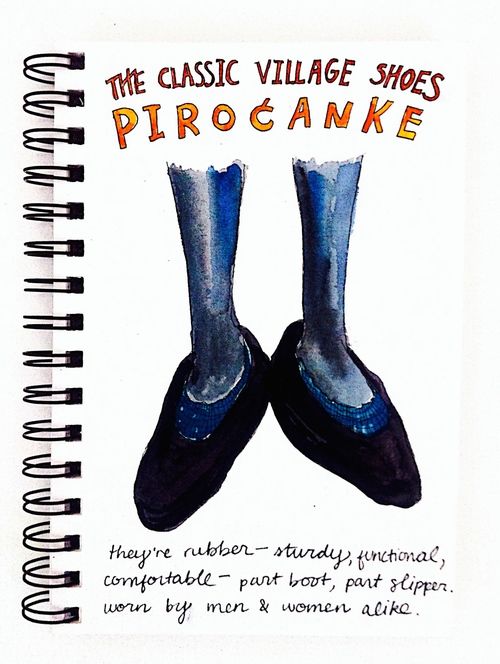 THE CLASSIC VILLAGE SHOES
PIROĆANKE
they're rubber – sturdy, functional,
comfortable – part boot, part slipper.
worn by men & women alike.